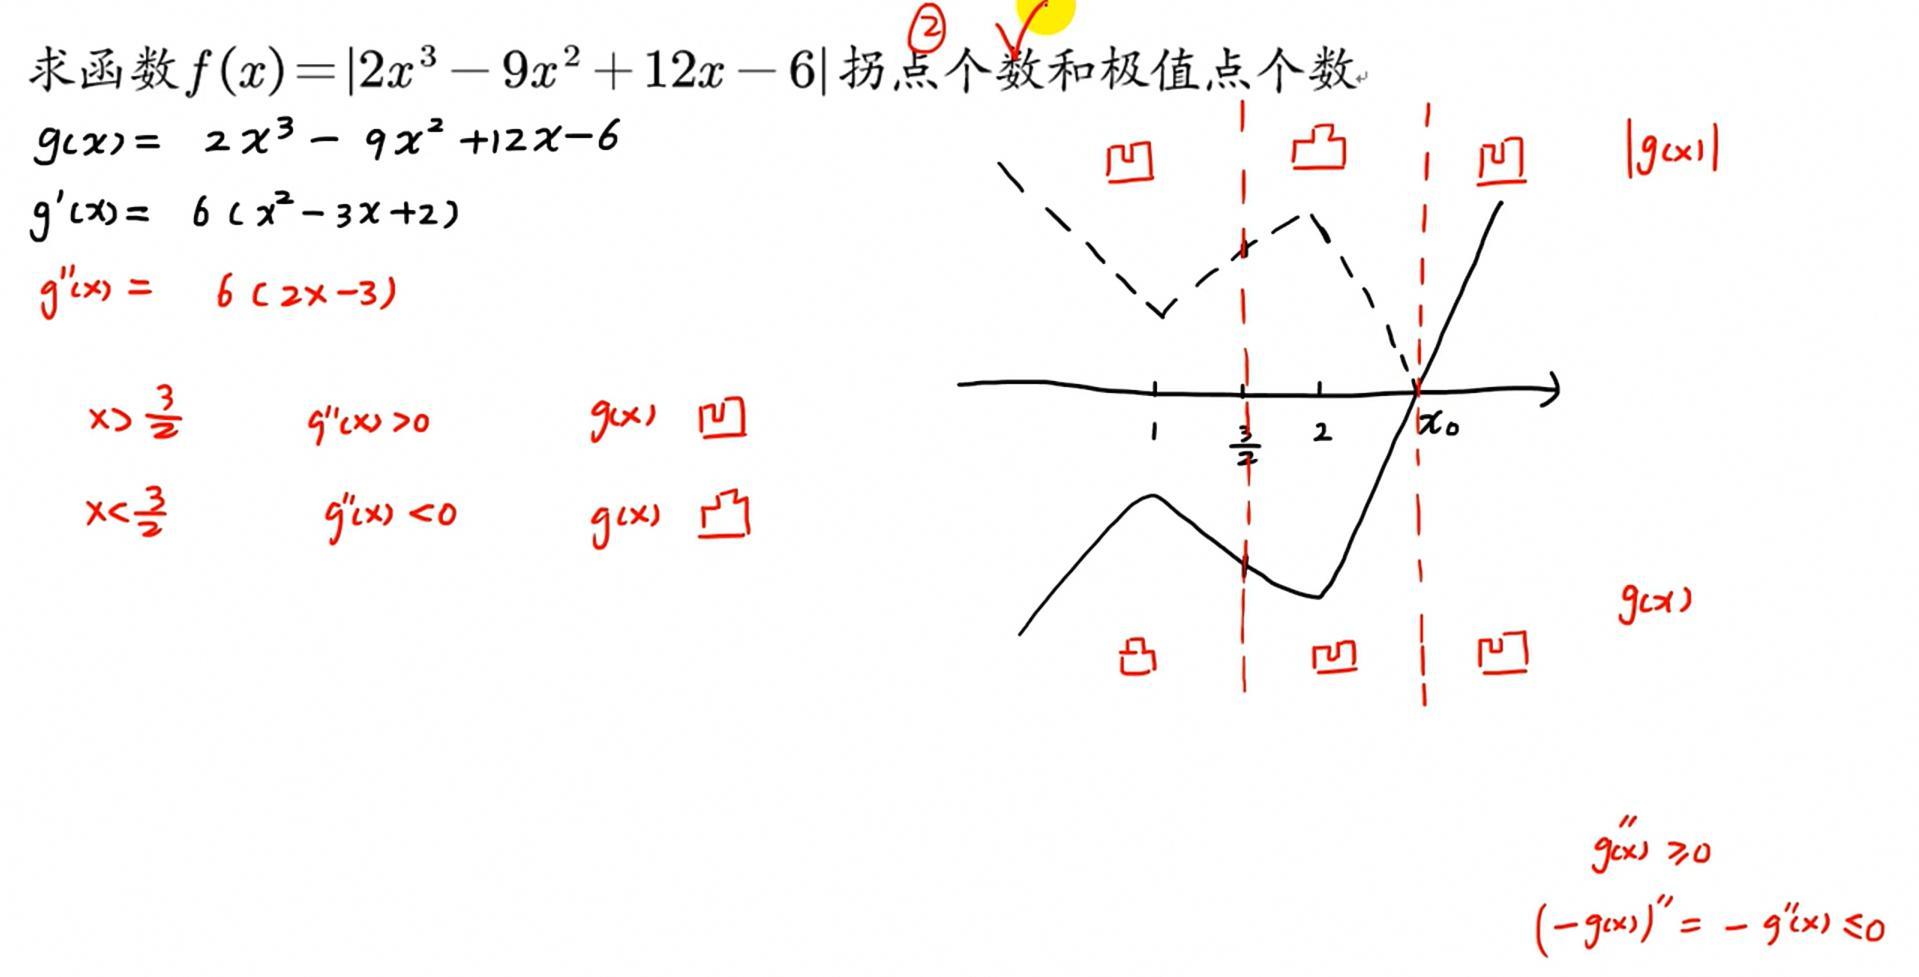 ②
求函数f(x)=|2x³−9x²+12x−6|拐点个数和极值点个数
g(x)= 2x³ − 9x² +12x−6
g'(x)= 6(x²−3x+2)
g''(x)= 6(2x−3)
x>3/2 g''(x)>0 g(x) 凹
x<3/2 g''(x)<0 g(x) 凸
凹 凸 凹 |g(x)|
1 3/2 2 x₀
g(x)
凸 凹 凹
g''(x) ≥0
(−g(x))''= −g''(x) ≤0